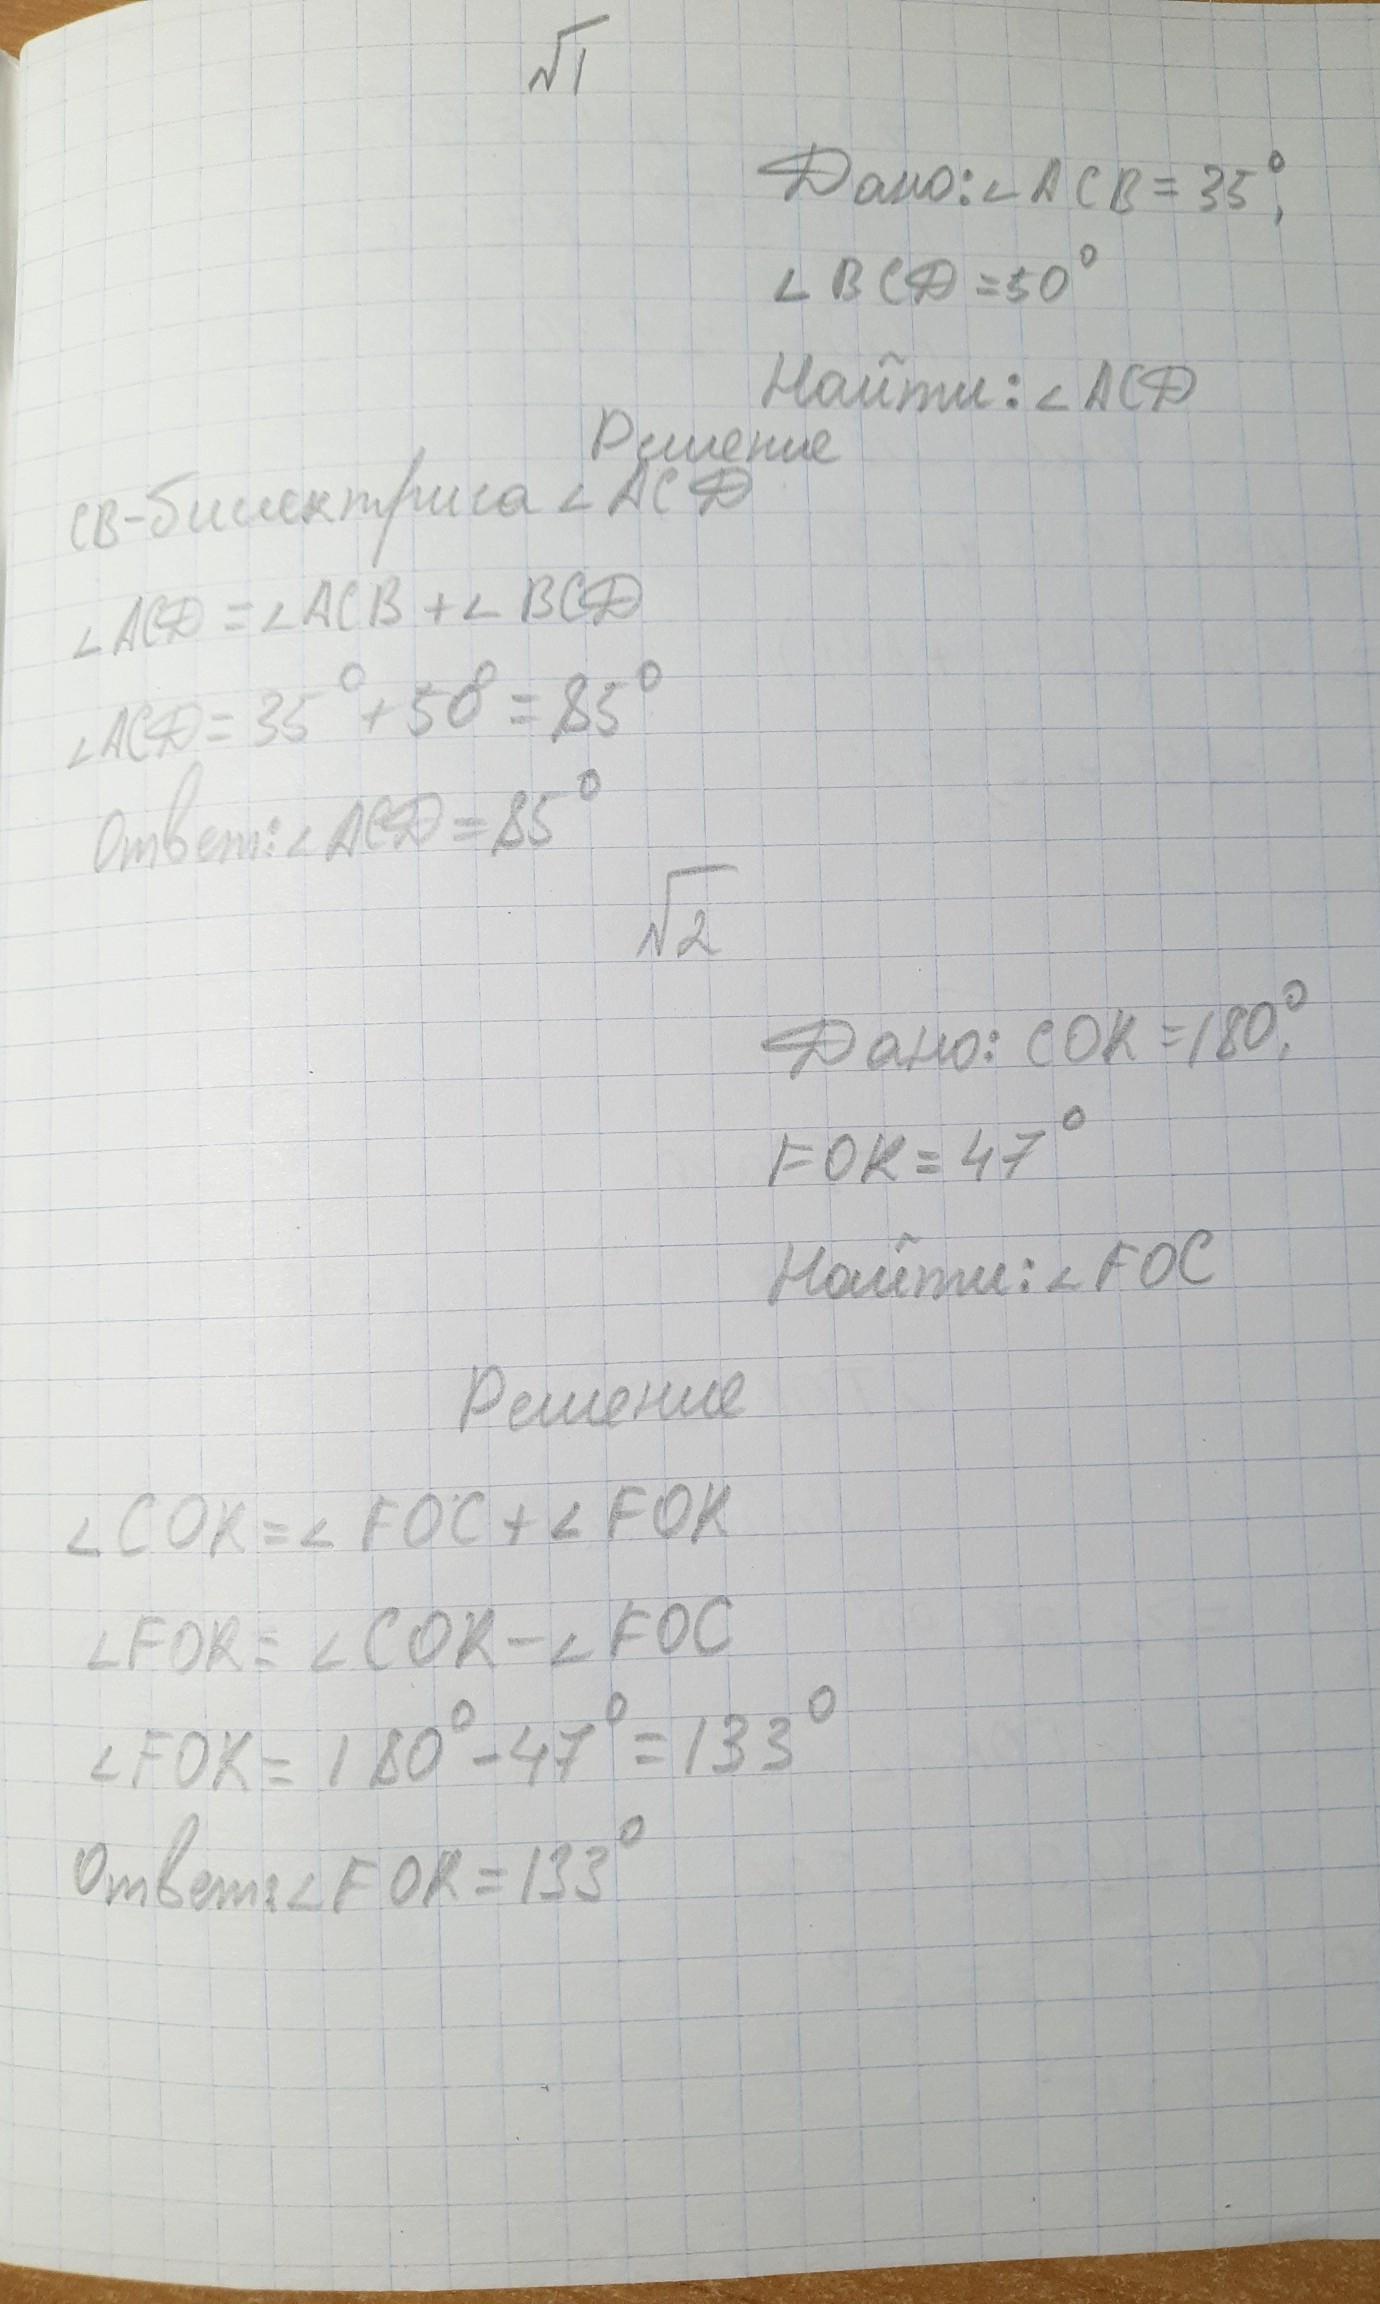 √1
Дано: ∠ACB = 35°,
∠BCD = 50°
Найти: ∠ACD
Решение
CB-биссектриса ∠ACD
∠ACD = ∠ACB + ∠BCD
∠ACD = 35° + 50° = 85°
Ответ: ∠ACD = 85°
√2
Дано: COK = 180°,
FOK = 47°
Найти: ∠FOC
Решение
∠COK = ∠FOC + ∠FOK
∠FOK = ∠COK - ∠FOC
∠FOK = 180° - 47° = 133°
Ответ: ∠FOK = 133°